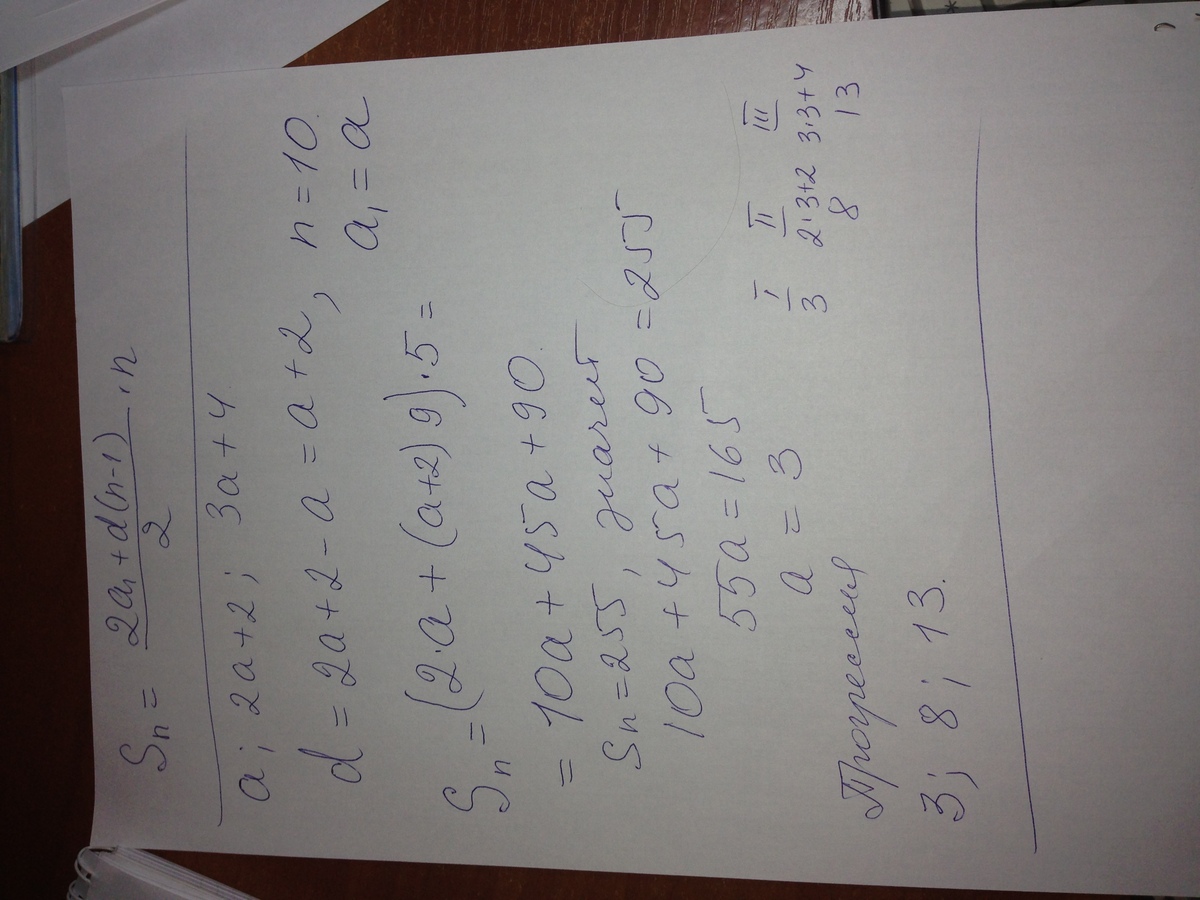 Sn = 2a₁ + d(n-1) / 2 · n
a; 2a+2; 3a+4
d = 2a+2-a = a+2, n=10
a₁ = a
Sn = (2·a + (a+2)9)·5 =
= 10a + 45a + 90.
Sn = 255, значит
10a + 45a + 90 = 255
55a = 165
a = 3
I II III
3 2·3+2 3·3+4
8 13
Прогрессия
3; 8; 13.